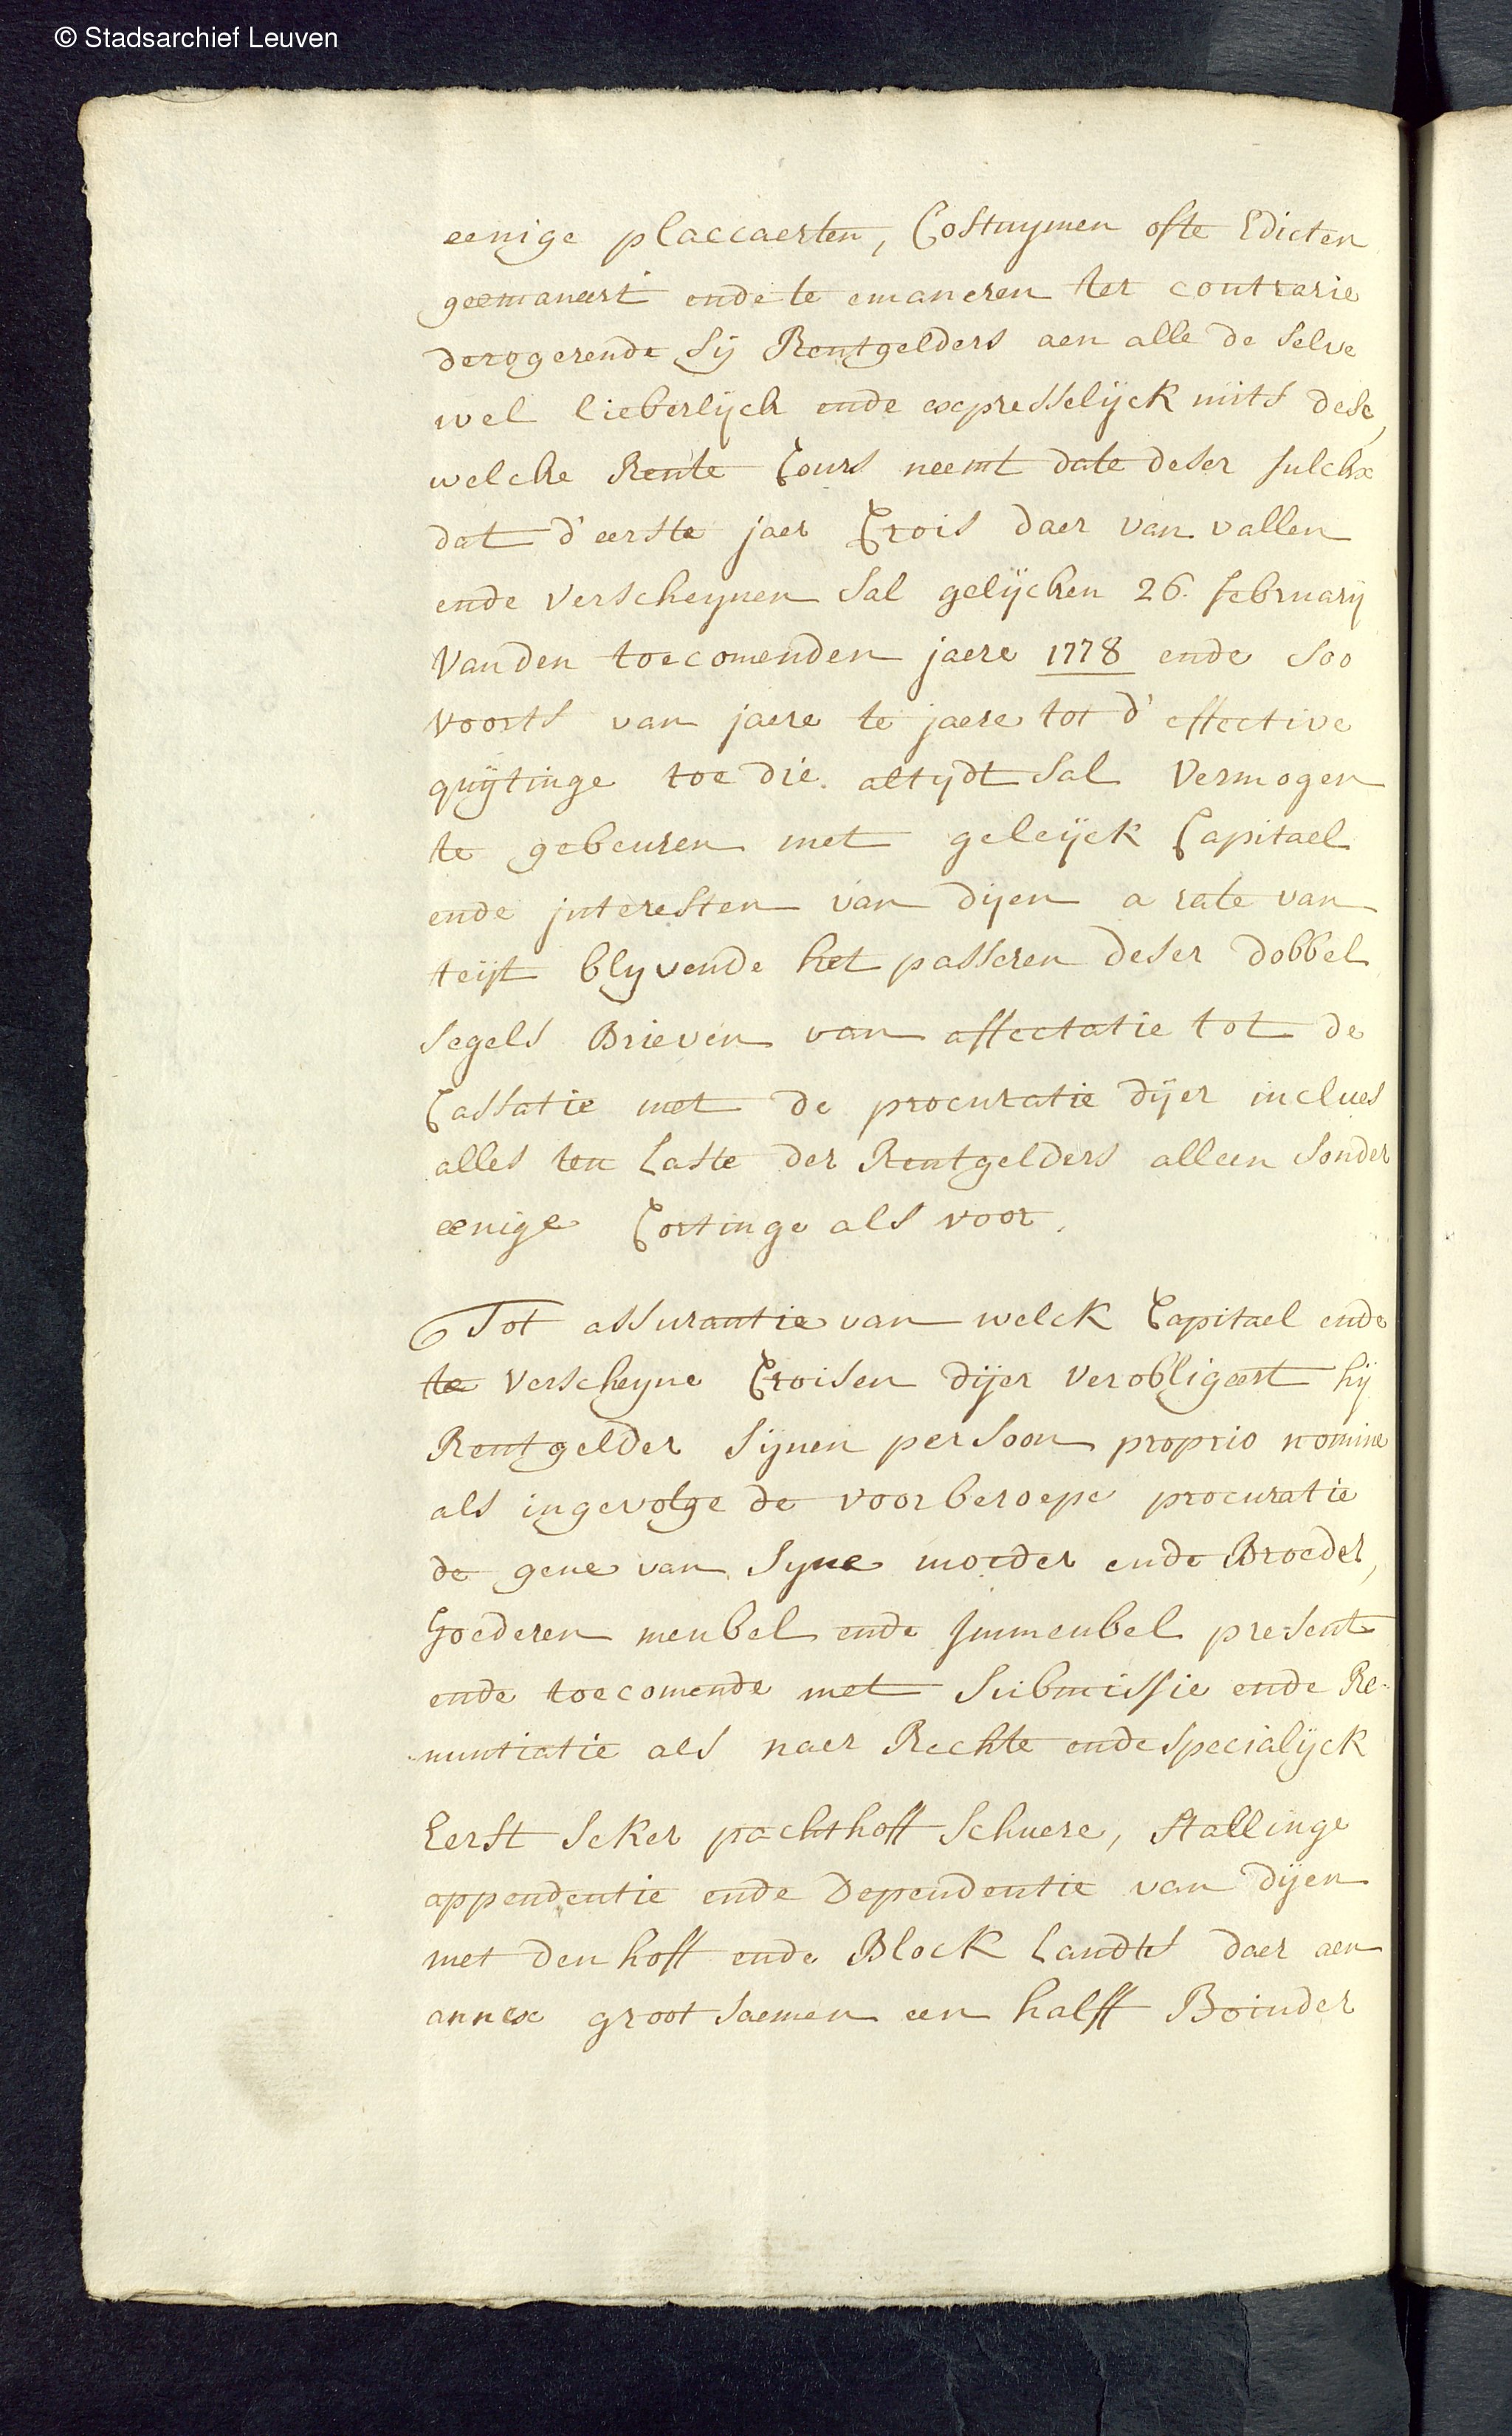 © Stadsarchief Leuven
eenige placcaerten, Costuymen ofte Edicten
geemaneert ende te emaneren ter contrarie
derogerende sij Rentgelders aen alle de selve
wel lieberlijck ende expresselijck mits dese,
welcke Rente Cours neemt date deser sulckx
dat d'eerste jaer Crois daer van vallen
ende verscheynen sal gelijcken 26. february
vanden toecomenden jaere 1778 ende soo
voorts van jaere te jaere tot d'effective
quijtinge toe die altijdt sal vermogen
te gebeuren met geleijck Capitael
ende interesten van dijen a rate van
teijt blyvende het passeren deser dobbel
segels Brieven van affectatie tot de
Cassatie met de procuratie dijer inclues
alles ten laste der Rentgelders alleen sonder
eenige Cortinge als voor.
Tot assurantie van welck Capitael ende
te verscheyne Croisen dijer verobligeert hij
Rentgelder sijnen persoon proprio nomine
als ingevolge de voorberoepe procuratie
de gene van syne moeder ende Broeder,
Goederen meubel ende immeubel present
ende toecomende met submissie ende Re-
nuntiatie als naer Rechte ende specialijck
Eerst seker pachthoff schuere, stallinge
appendentie ende dependentie van dijen
met den hoff ende Block Landts daer aen
annex groot saemen een halff Boinder